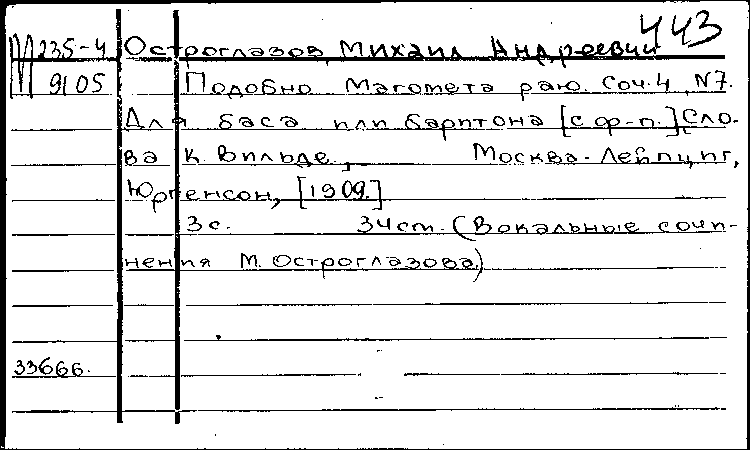 443
М 235-4 Остроглазов, Михаил Андреевич
9105 Подобно Магомета раю. Соч. 4, N7.
Для баса или баритона [с ф-п.] Сло-
ва К. Вильде, Москва-Лейпциг,
Юргенсон, [1909.]
3 с. 34 ст. (Вокальные сочи-
нения М. Остроглазова)
33666.